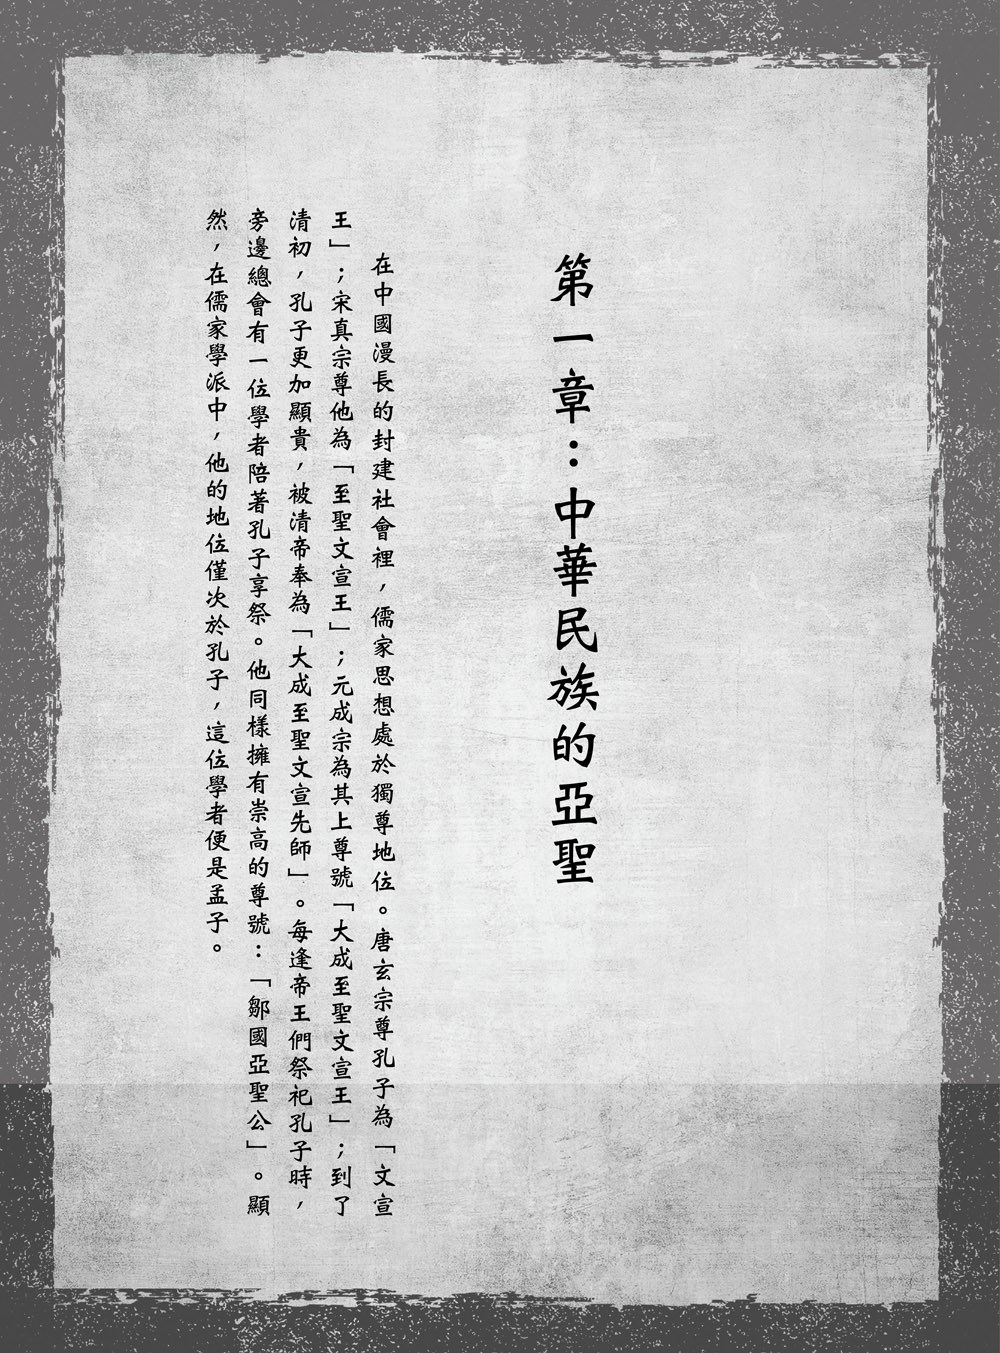 第一章：中華民族的亞聖
在中國漫長的封建社會裡，儒家思想處於獨尊地位。唐玄宗尊孔子為「文宣
王」；宋真宗尊他為「至聖文宣王」；元成宗為其上尊號「大成至聖文宣王」；到了
清初，孔子更加顯貴，被清帝奉為「大成至聖文宣先師」。每逢帝王們祭祀孔子時，
旁邊總會有一位學者陪著孔子享祭。他同樣擁有崇高的尊號：「鄒國亞聖公」。顯
然，在儒家學派中，他的地位僅次於孔子，這位學者便是孟子。